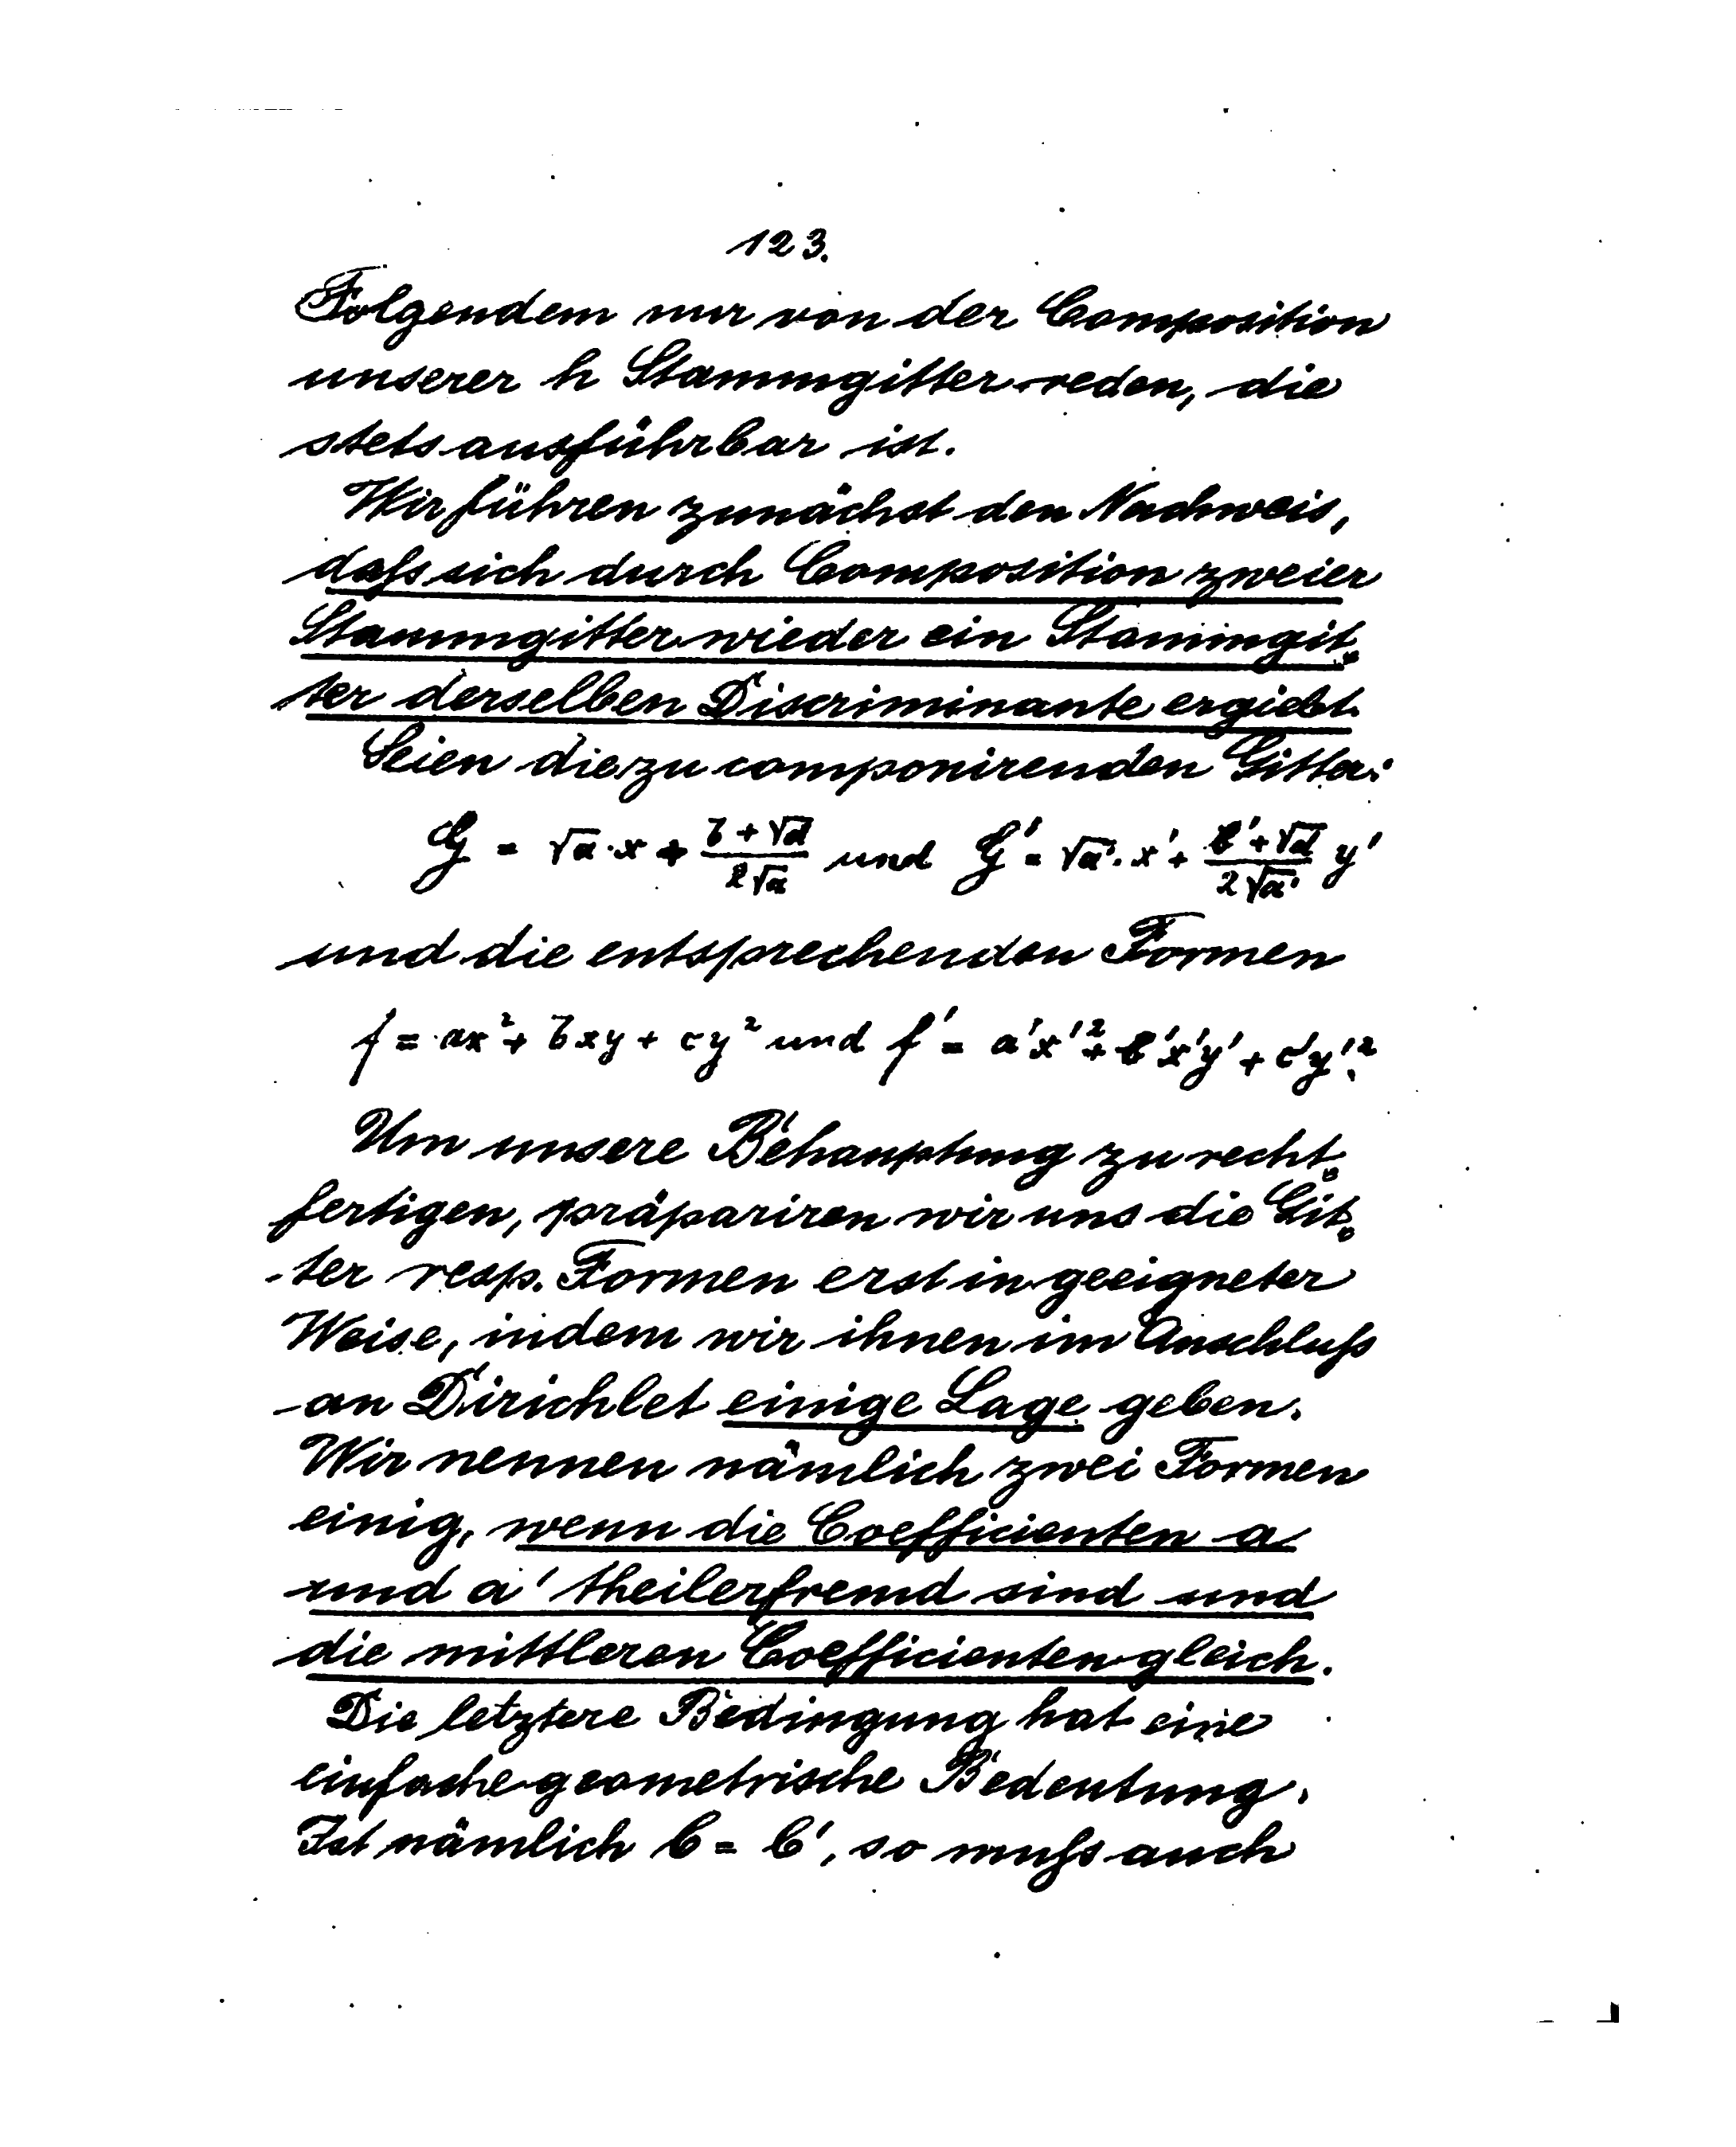 123.
Folgendem nur von der Composition
unserer h Stammgitter reden, die
stets ausführbar ist.
Wir führen zunächst den Nachweis,
daſs sich durch Composition zweier
Stammgitter wieder ein Stammgit-
ter derselben Discriminante ergiebt.
Seien die zu componirenden Gitter:
G = √a·x + (b+√d)/(2√a) und G' = √a'·x' + (b'+√d)/(2√a') y'
und die entsprechenden Formen
f = ax² + bxy + cy² und f' = a'x'² + b'x'y' + c'y'².
Um unsere Behauptung zu recht-
fertigen, präpariren wir uns die Git-
ter resp. Formen erst in geeigneter
Weise, indem wir ihnen im Anschluſs
an Dirichlet einige Lage geben.
Wir nennen nämlich zwei Formen
einig, wenn die Coefficienten a
und a' theilerfremd sind und
die mittleren Coefficienten gleich.
Die letztere Bedingung hat eine
einfache geometrische Bedeutung.
Ist nämlich b = b', so muſs auch